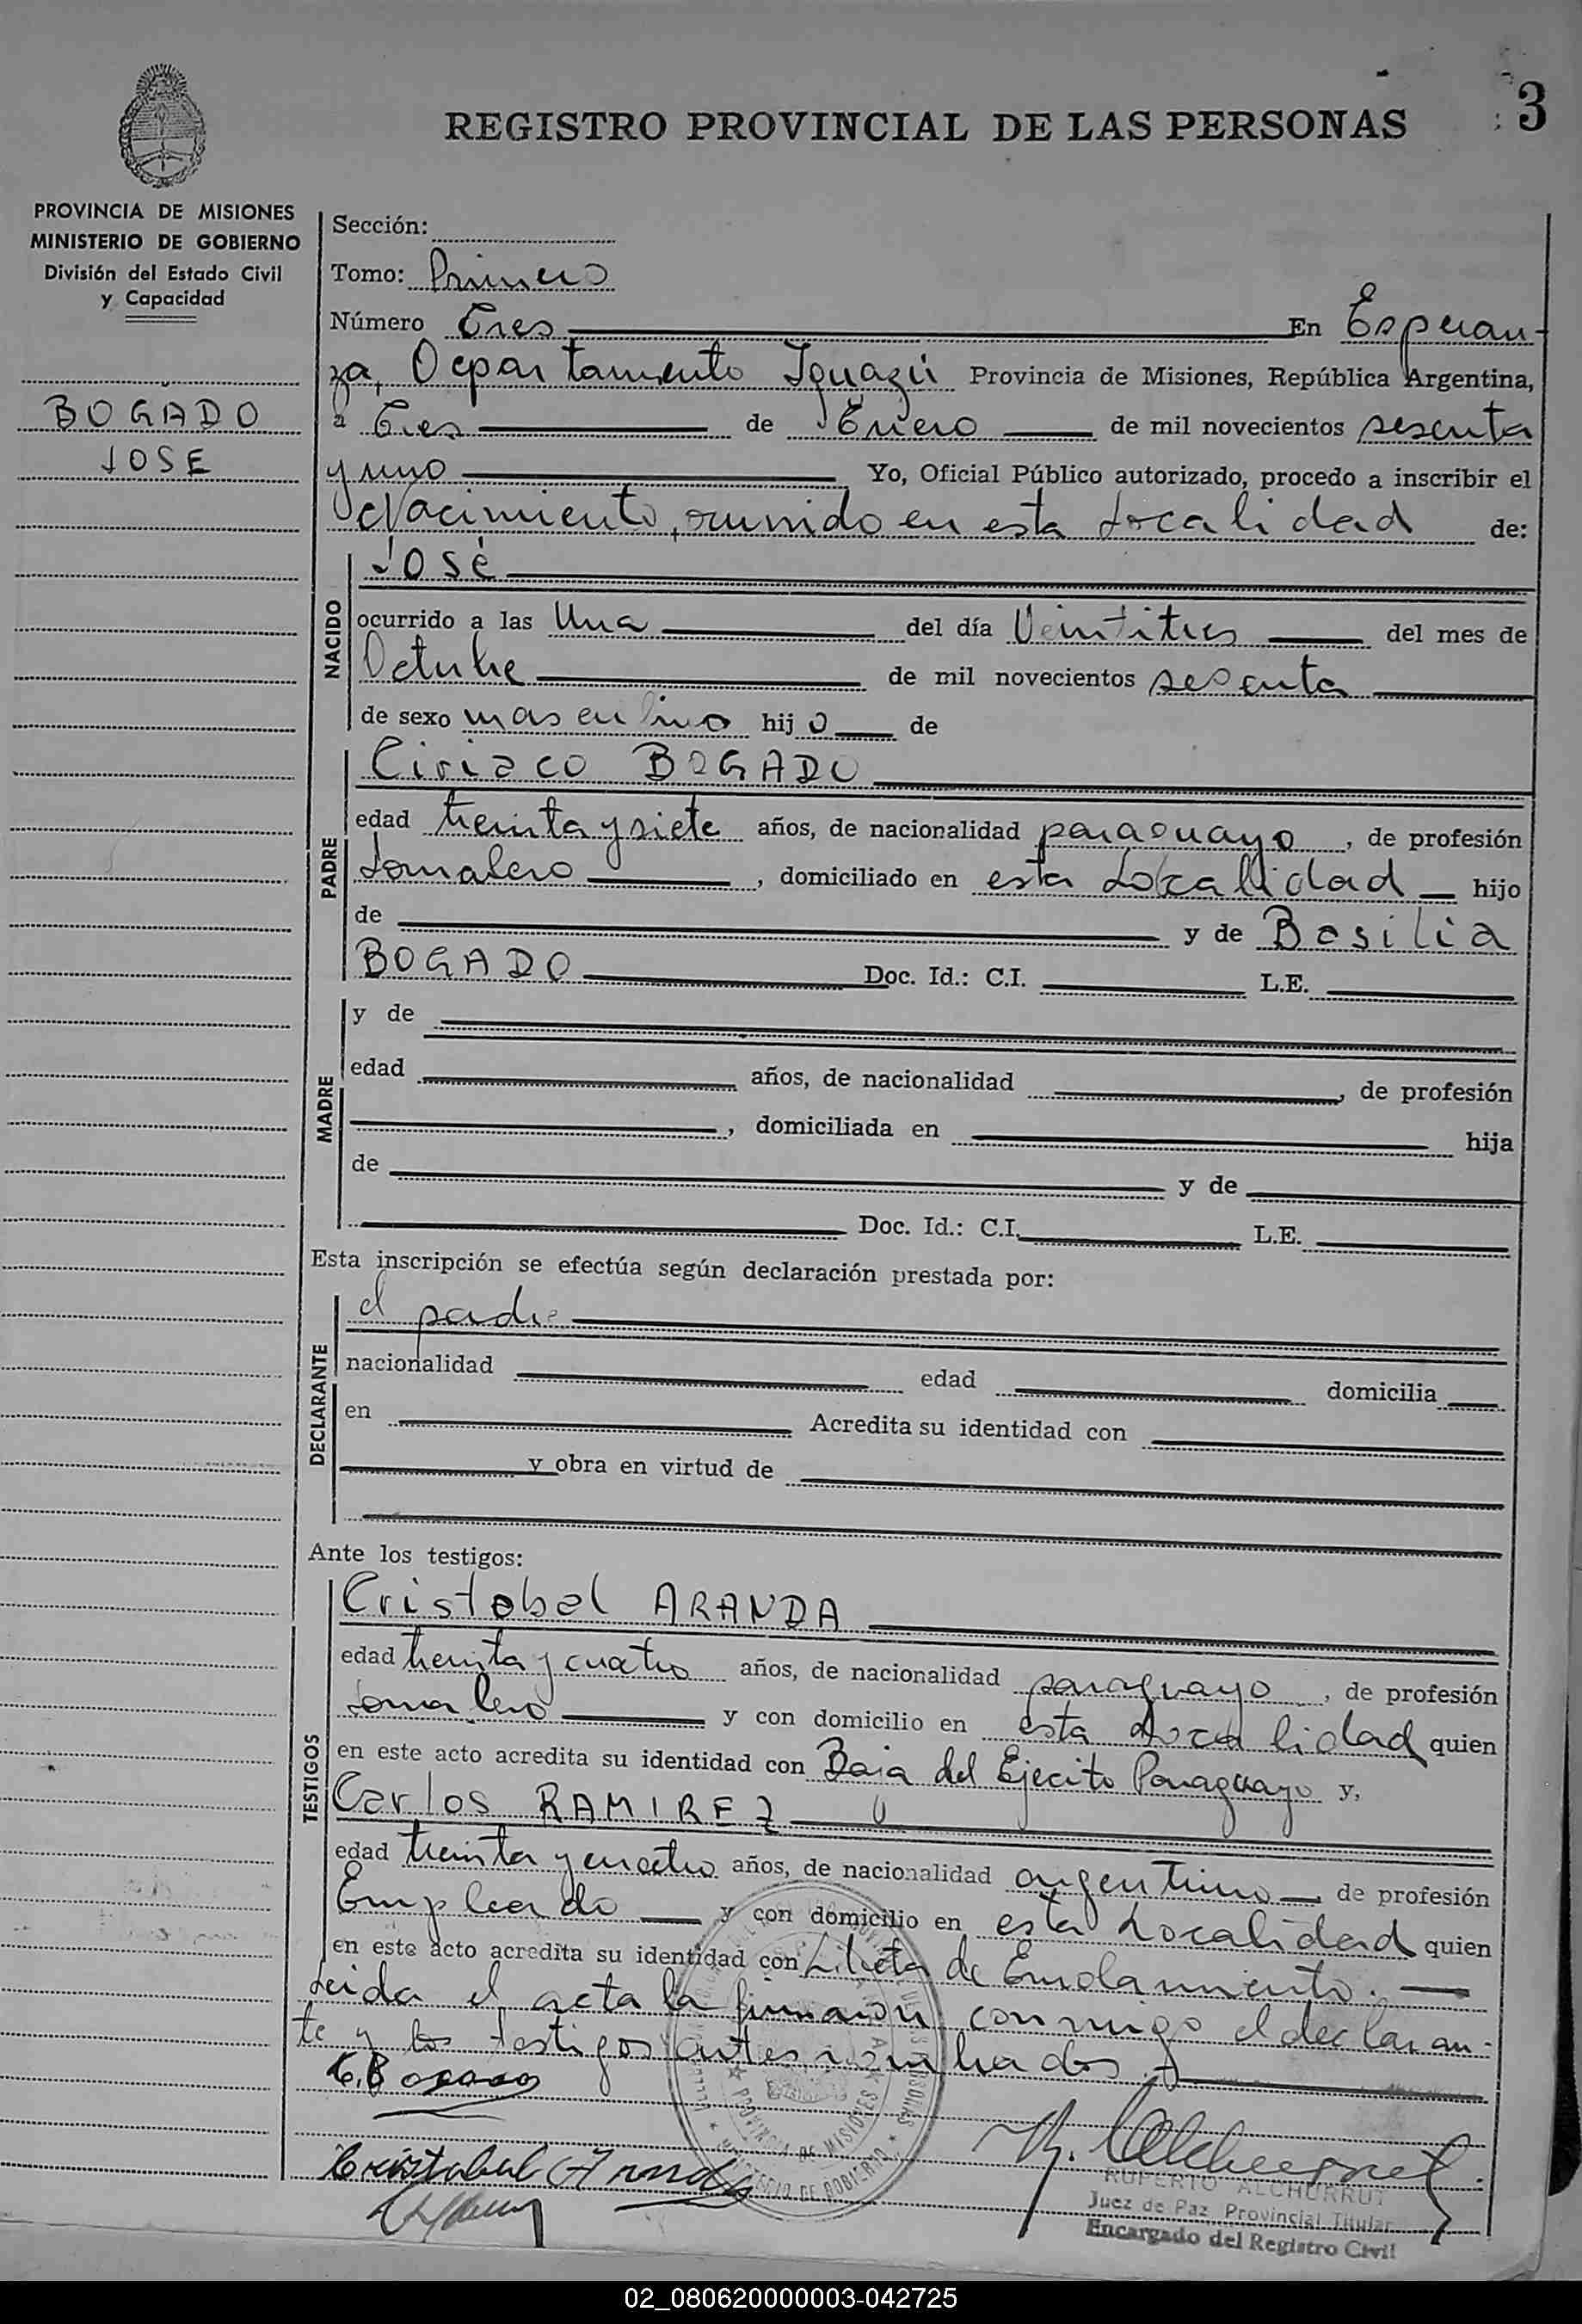 REGISTRO PROVINCIAL DE LAS PERSONAS
3
PROVINCIA DE MISIONES
MINISTERIO DE GOBIERNO
División del Estado Civil
y Capacidad
BOGADO
JOSE
Sección:
Tomo: Primero
Número Tres En Esperan-
za, Departamento Iguazú Provincia de Misiones, República Argentina,
a Tres de Enero de mil novecientos sesenta
y uno Yo, Oficial Público autorizado, procedo a inscribir el
Nacimiento, ocurrido en esta Localidad de:
NACIDO
José
ocurrido a las Una del día Veintitres del mes de
Octubre de mil novecientos sesenta
de sexo masculino hijo de
PADRE
Ciriaco BOGADO
edad treinta y siete años, de nacionalidad paraguayo, de profesión
Jornalero, domiciliado en esta Localidad hijo
de y de Basilia
BOGADO Doc. Id.: C.I. L.E.
MADRE
y de
edad años, de nacionalidad, de profesión
, domiciliada en hija
de y de
Doc. Id.: C.I. L.E.
Esta inscripción se efectúa según declaración prestada por:
DECLARANTE
el padre
nacionalidad edad domicilia
en Acredita su identidad con
y obra en virtud de
Ante los testigos:
TESTIGOS
Cristobal ARANDA
edad treinta y cuatro años, de nacionalidad paraguayo, de profesión
Jornalero y con domicilio en esta Localidad quien
en este acto acredita su identidad con Baja del Ejecito Paraguayo y,
Carlos RAMIREZ
edad treinta y cuatro años, de nacionalidad argentino de profesión
Empleado y con domicilio en esta Localidad quien
en este acto acredita su identidad con Libreta de Enrolamiento.
Leida el acta la firmaron conmigo el declaran-
te y los testigos antes nombrados.
PROVINCIA DE MISIONES
MINISTERIO DE GOBIERNO
Cristobal Aranda
RUPERTO ALCHURRUT
Juez de Paz Provincial Titular
Encargado del Registro Civil
02_080620000003-042725